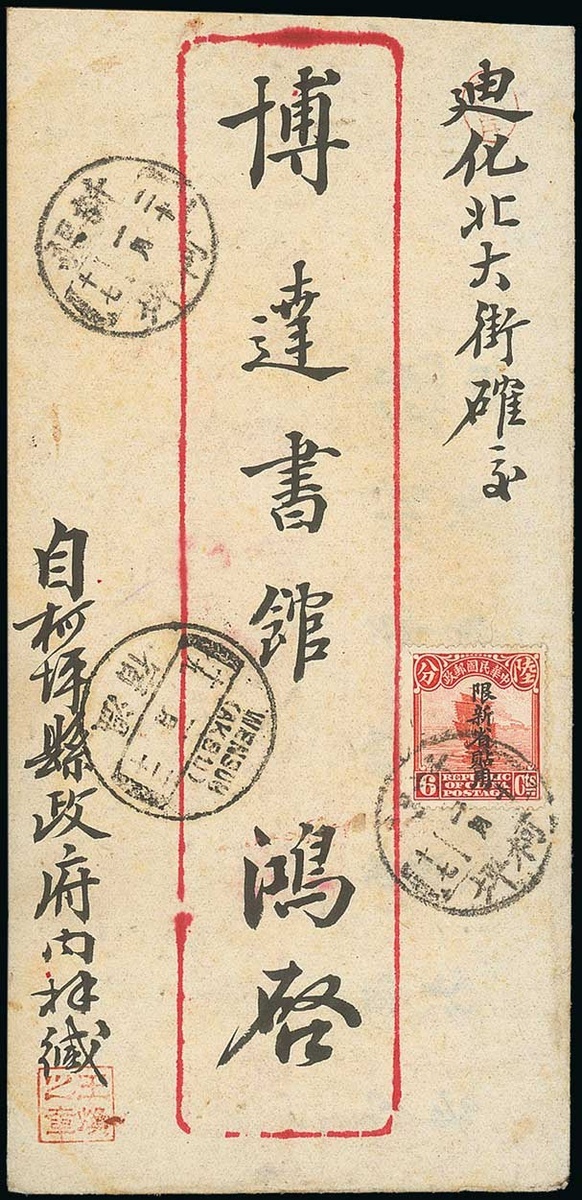 迪化北大街確交
博達書館 鴻啓
自柯坪縣政府內祥緘
中華民國郵政
陸
分
限新省貼用
6 Cts
REPUBLIC OF CHINA
POSTAGE
WENSUH
(AKSU)
溫宿
柯坪